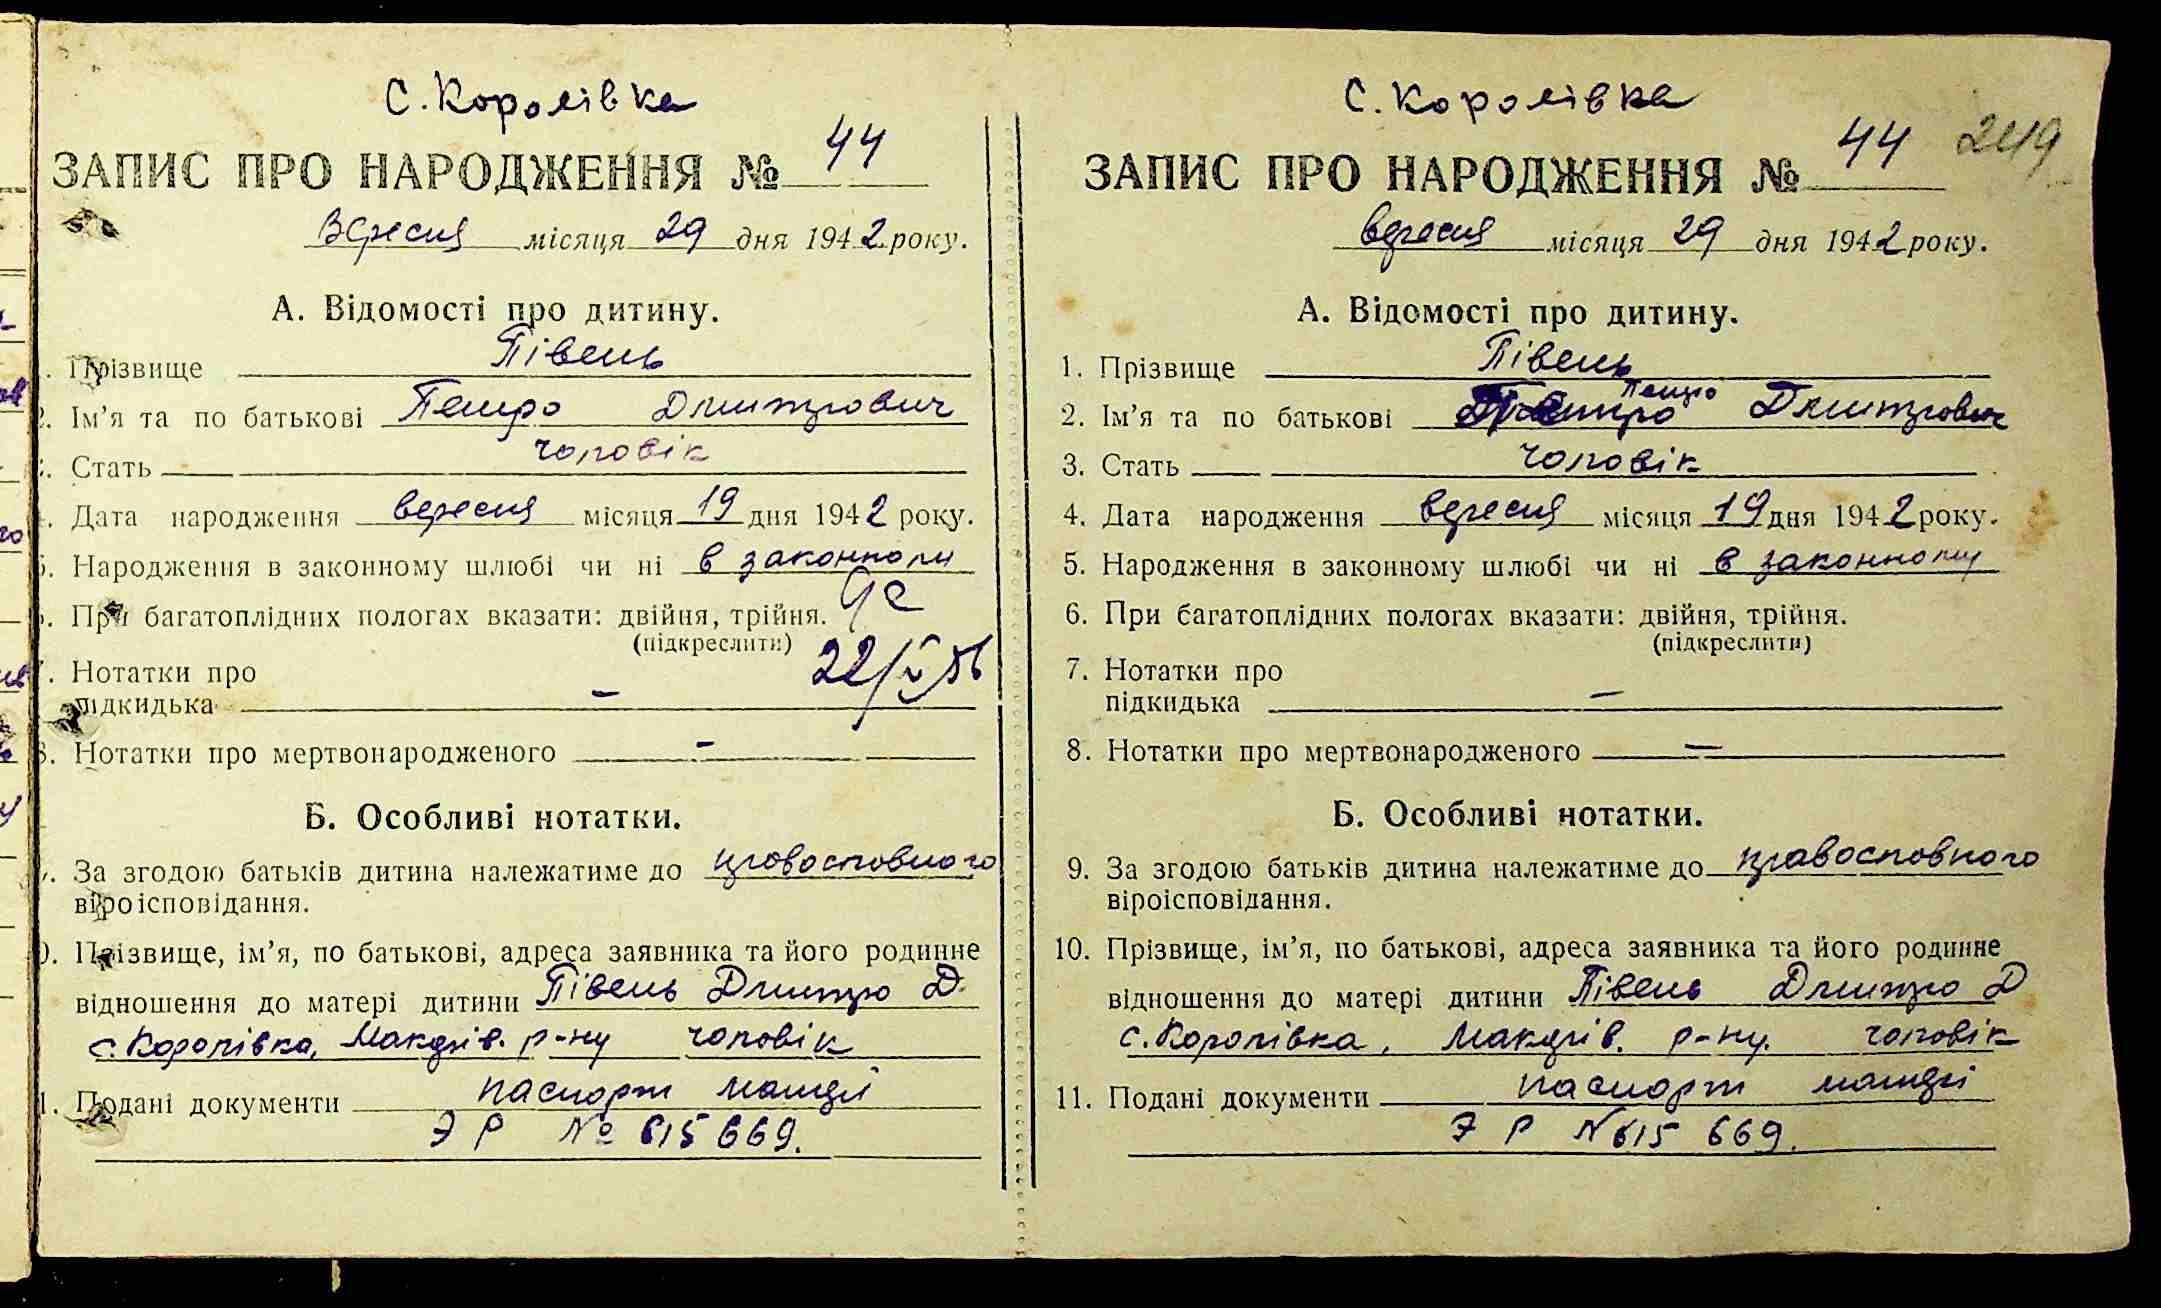 с. Королівка
ЗАПИС ПРО НАРОДЖЕННЯ № 44
Вересня місяця 29 дня 1942 року.
А. Відомості про дитину.
Прізвище Півень
2. Ім’я та по батькові Петро Дмитрович
Стать чоловік
Дата народження вересня місяця 19 дня 1942 року.
5. Народження в законному шлюбі чи ні в законному
При багатоплідних пологах вказати: двійня, трійня.
(підкреслити)
22/V 56
Нотатки про
підкидька –
8. Нотатки про мертвонародженого –
Б. Особливі нотатки.
За згодою батьків дитина належатиме до православного
віроісповідання.
Прізвище, ім’я, по батькові, адреса заявника та його родинне
відношення до матері дитини Півень Дмитро Д.
с. Королівка, Макарів. р-ну чоловік
1. Подані документи паспорт матері
ЭР № 615669.
с. Королівка
ЗАПИС ПРО НАРОДЖЕННЯ № 44 249
вересня місяця 29 дня 1942 року.
А. Відомості про дитину.
1. Прізвище Півень
Петро
2. Ім’я та по батькові Петро Дмитрович
3. Стать чоловік
4. Дата народження вересня місяця 19 дня 1942 року.
5. Народження в законному шлюбі чи ні в законному
6. При багатоплідних пологах вказати: двійня, трійня.
(підкреслити)
7. Нотатки про
підкидька –
8. Нотатки про мертвонародженого –
Б. Особливі нотатки.
9. За згодою батьків дитина належатиме до православного
віроісповідання.
10. Прізвище, ім’я, по батькові, адреса заявника та його родинне
відношення до матері дитини Півень Дмитро Д
с. Королівка, Макарів. р-ну. чоловік
11. Подані документи паспорт матері
Э Р N 615 669.